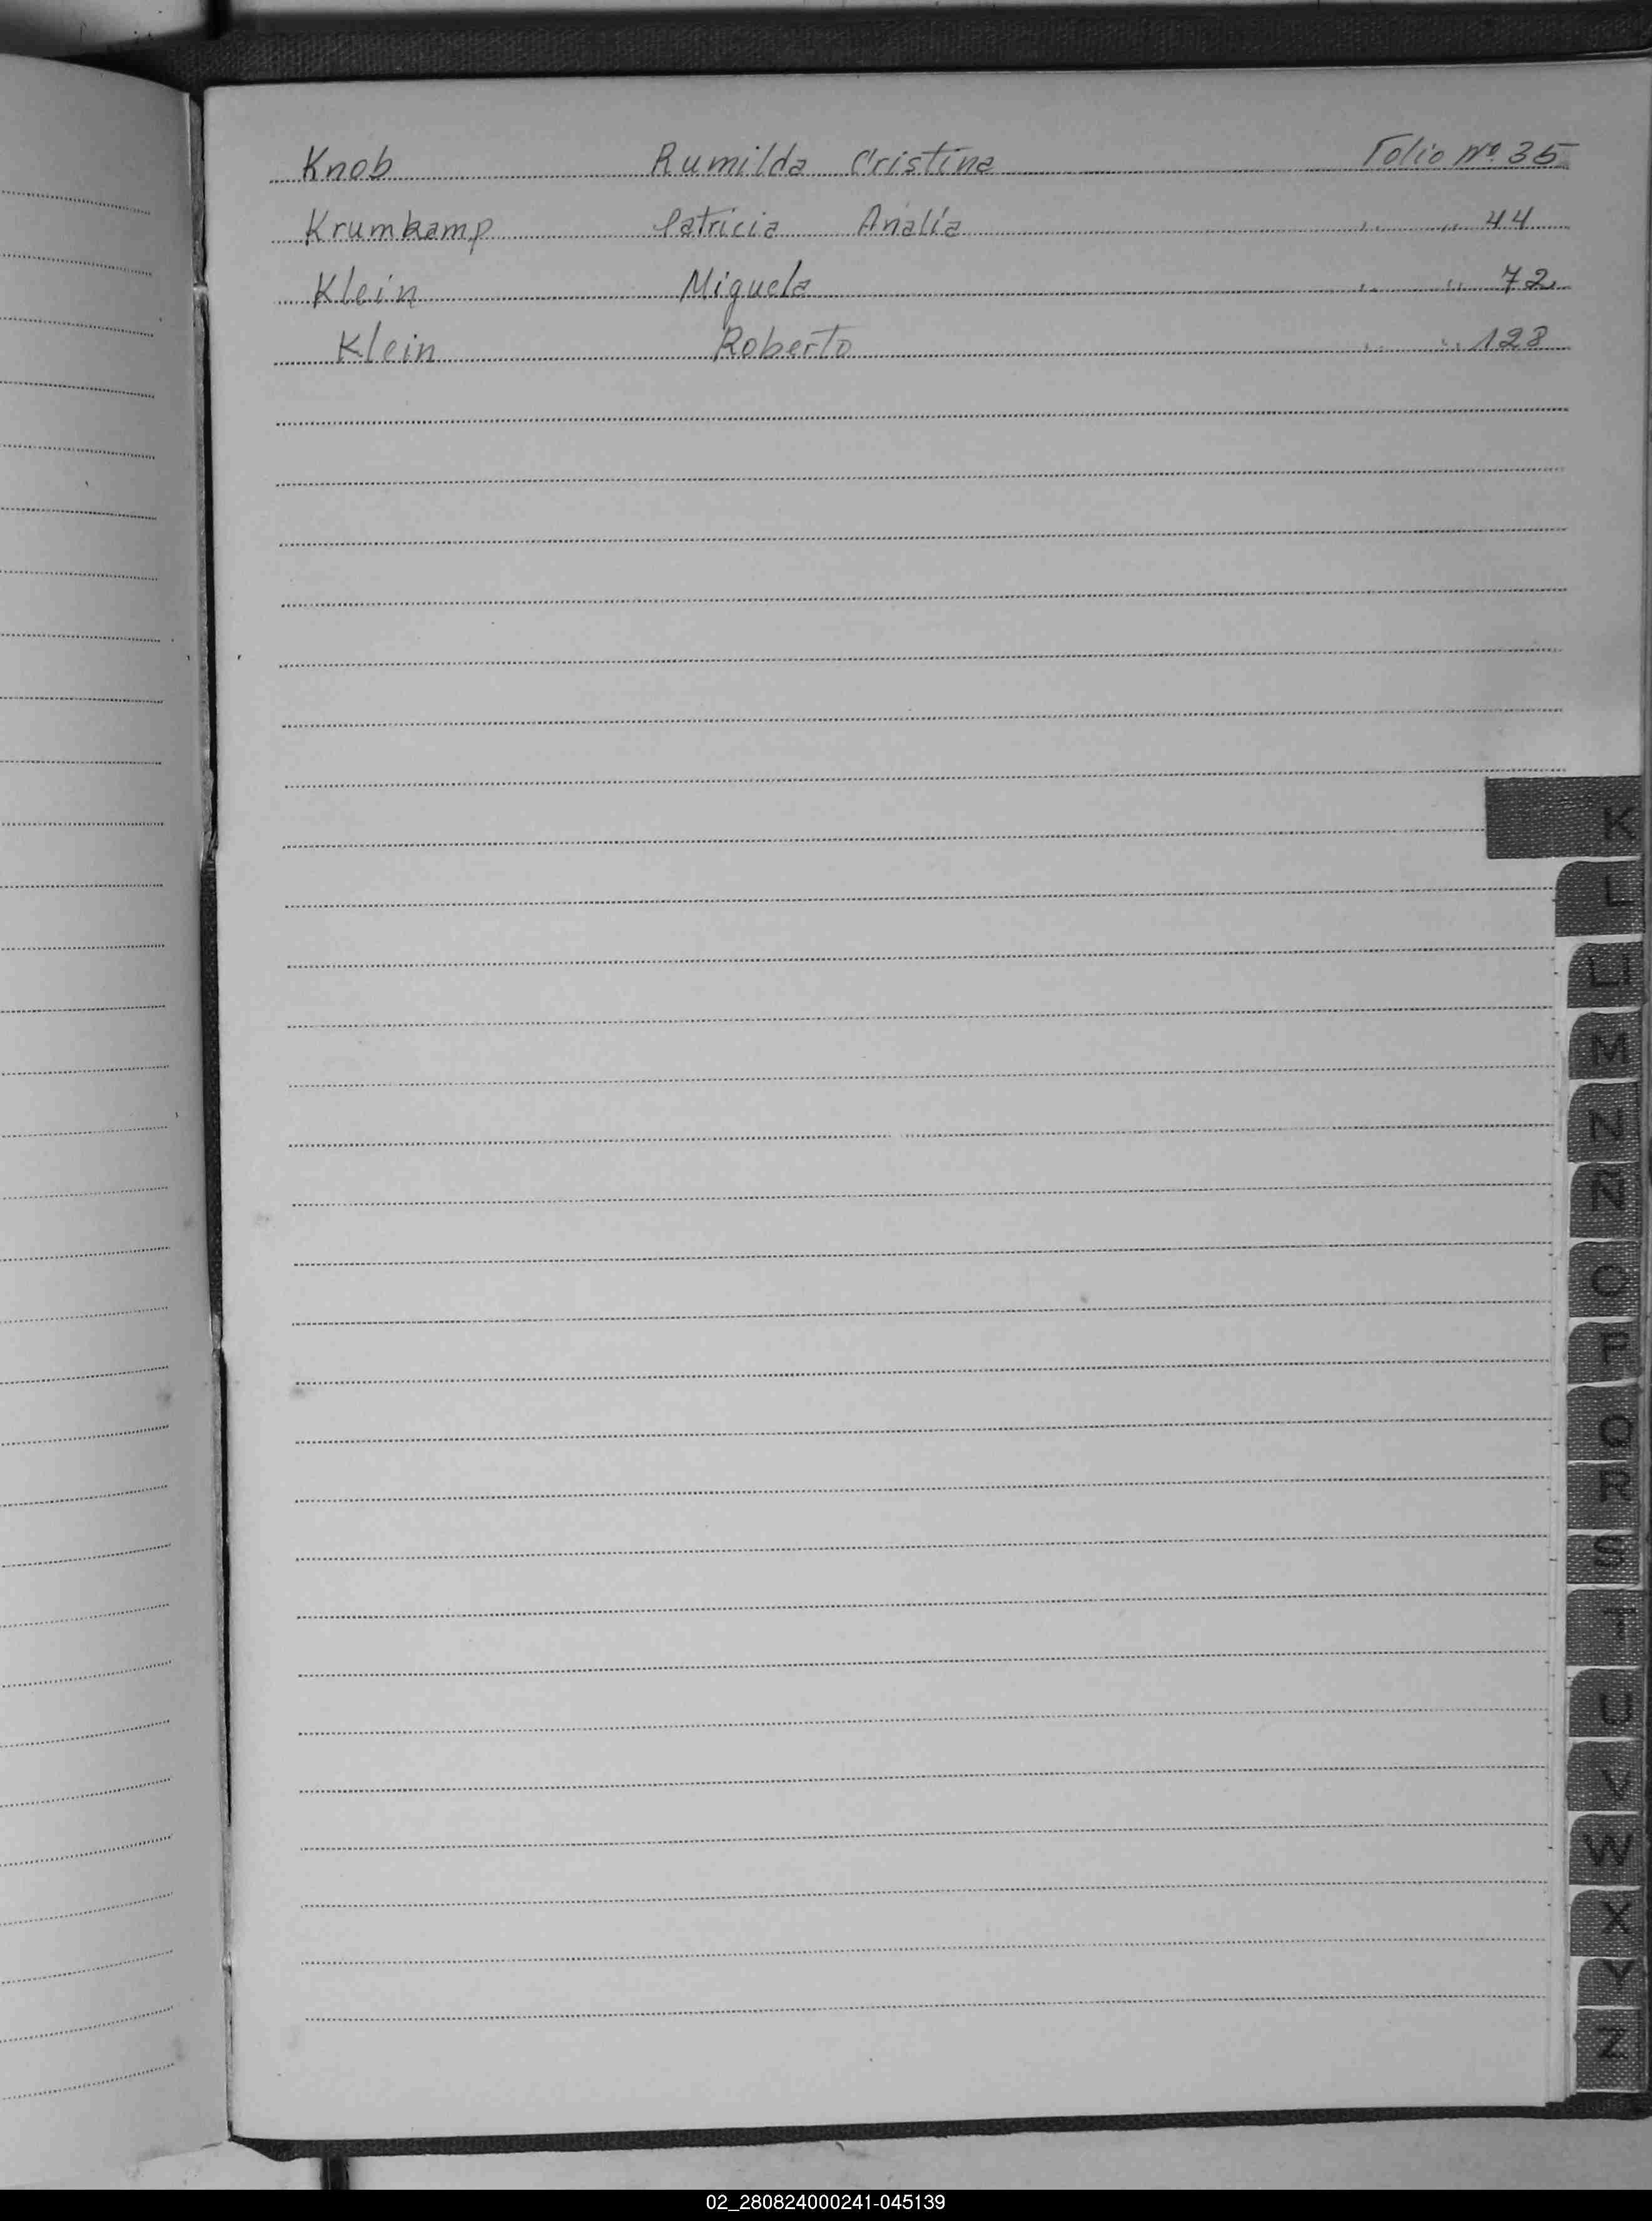 Knob Rumilda Cristina Folio Nº 35
Krumkamp Patricia Analía " " 44
Klein Miguela " " 72
Klein Roberto " " 128
K
L
LL
M
N
Ñ
O
P
Q
R
S
T
U
V
W
X
Y
Z
02_280824000241-045139